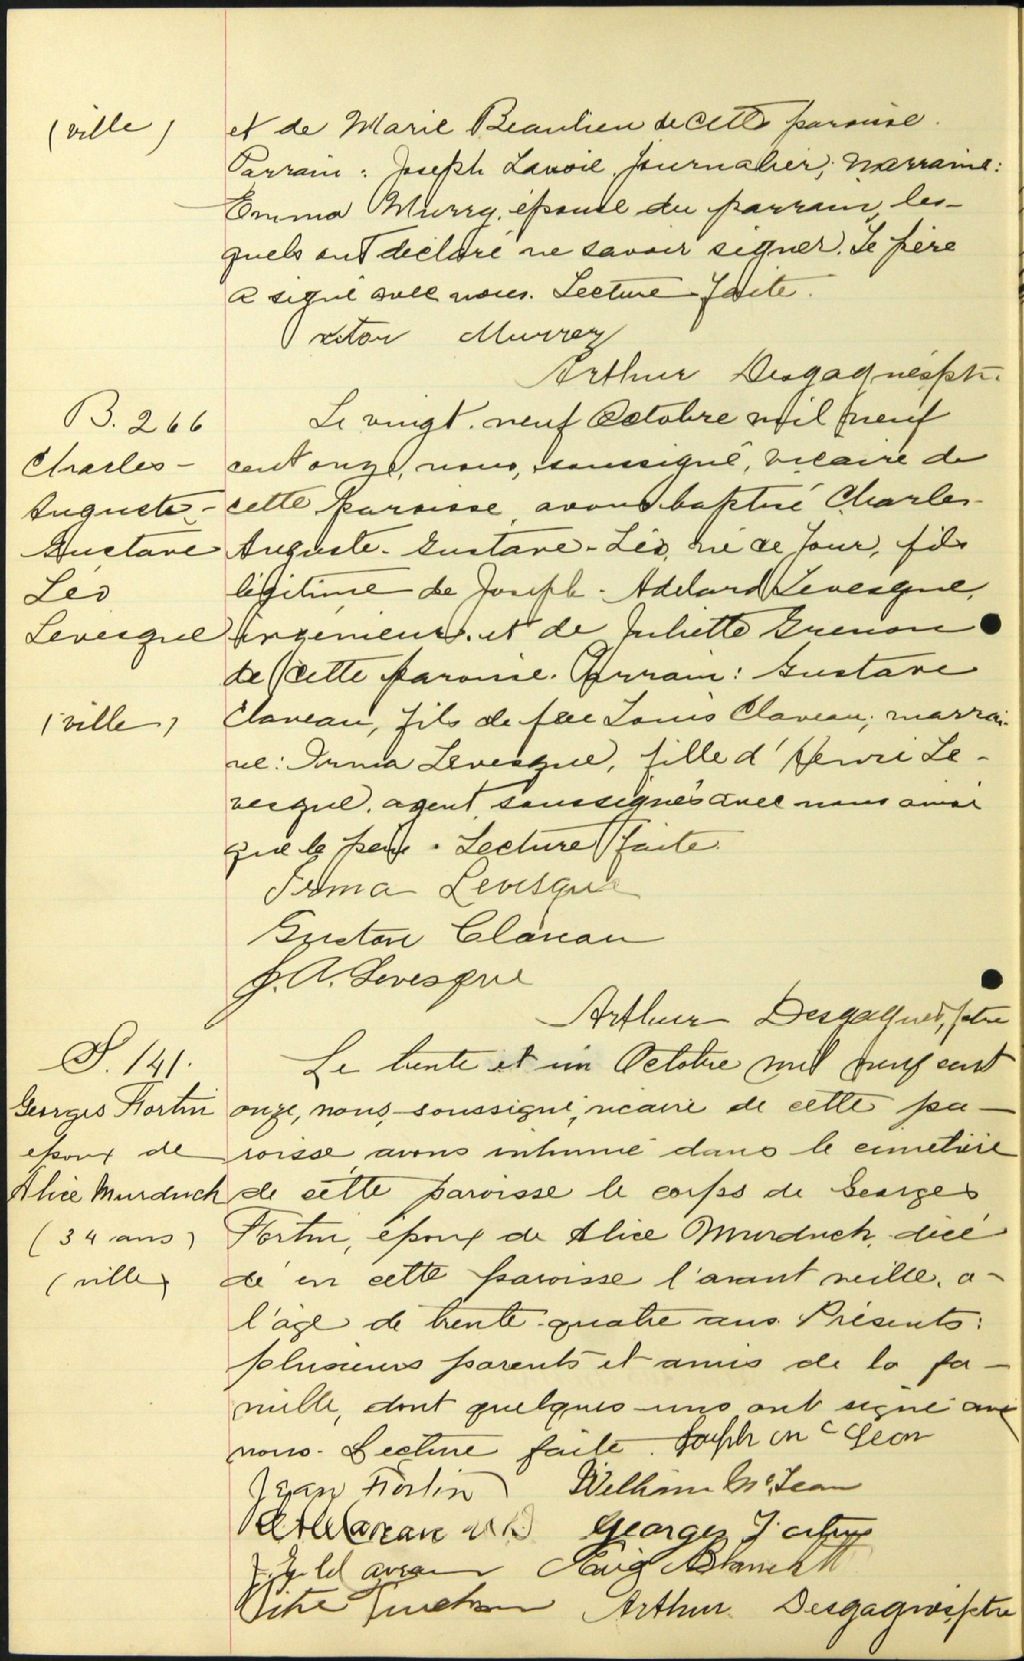 (ville)
et de Marie Beaulieu de cette paroisse.
Parrain : Joseph Lavoie, journalier; marraine:
Emma Murry, épouse du parrain, les-
quels ont déclaré ne savoir signer. Le père
a signé avec nous. Lecture faite.
Murray
Arthur Desgagnés ptr.
B. 266
Charles-
Auguste-
Gustave
Léo
Levesque
(ville)
Le vingt-neuf Octobre mil neuf
cent onze, nous, soussigné, vicaire de
cette paroisse avons baptisé Charles-
Auguste-Gustave-Léo, né ce jour, fils
légitime de Joseph-Adelard Levesque,
ingénieur, et de Juliette Grenon
de cette paroisse. Parrain: Gustave
Claveau, fils de feu Louis Claveau; marrai-
ne: Irma Levesque, fille d'Henri Le-
vesque, agent, soussignés avec nous ainsi
que le père. Lecture faite.
Irma Levesque
Gustave Claveau
J. A. Levesque
Arthur Desgagnés, ptre
S. 141.
Georges Fortin
époux de
Alice Murduck
(34 ans)
(ville)
Le trente et un Octobre mil neuf cent
onze, nous, soussigné, vicaire de cette pa-
roisse, avons inhumé dans le cimetière
de cette paroisse le corps de Georges
Fortin, époux de Alice Murduck, décé
dé en cette paroisse l'avant veille, a-
l'âge de trente-quatre ans. Présents:
plusieurs parents et amis de la fa-
mille, dont quelques-uns ont signé avec
nous. Lecture faite. Joseph Mc Lean
Jean Fortin William McLean
Georges Fortin
Arthur Desgagnés, ptre